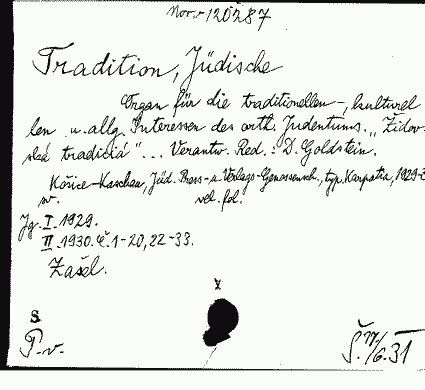 Nov.v 120287
Tradition, Jüdische
Organ für die traditionellen-, kulturel
len u. allg. Interessen des orth. Judentums. „Židov-
ská tradiciá"... Verantw. Red.: D. Goldstein.
Košice-Kaschau, Jüd. Press- u. Verlags-Genossensch., typ. Karpatia, 1929-
w. vel. fol.
Jg. I. 1929.
II. 1930. č. 1-20, 22-33.
Zašel.
S
P.v.